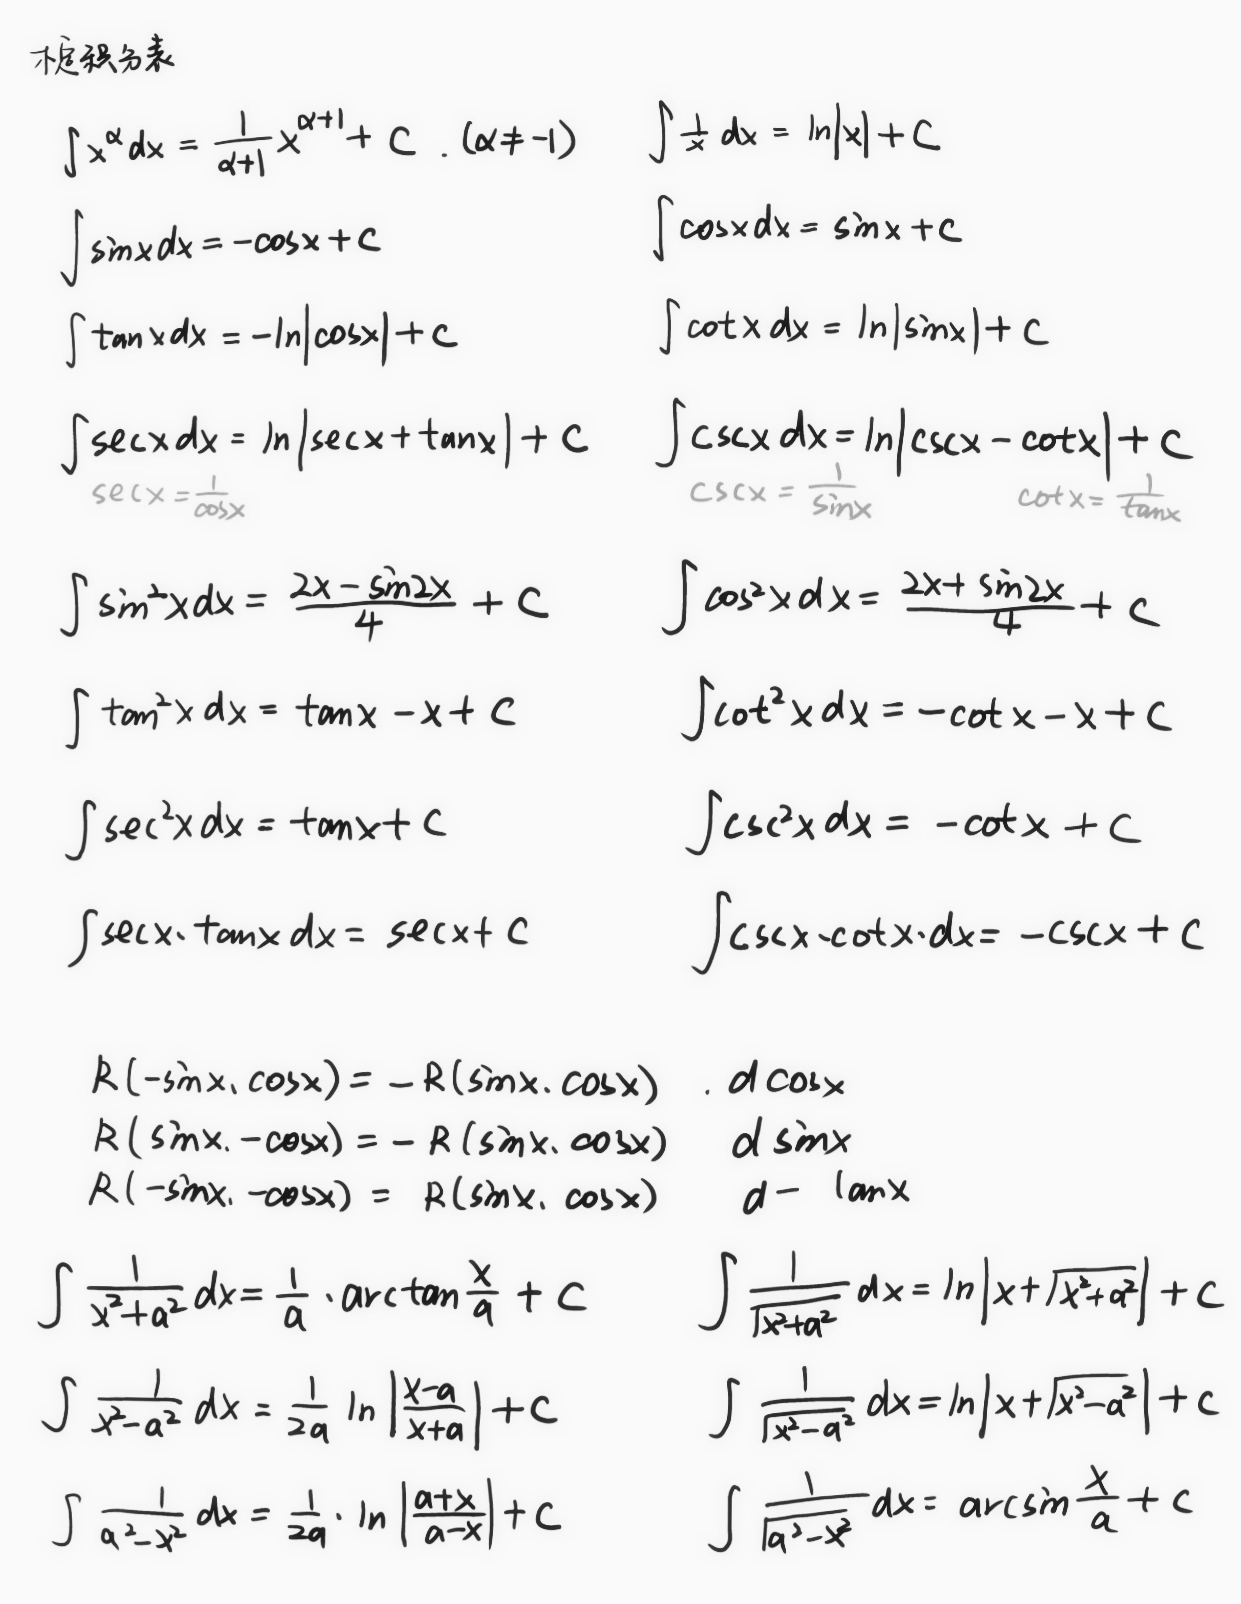 不定积分表
∫x^α dx = 1/(α+1) x^(α+1) + C . (α ≠ -1)
∫1/x dx = ln|x| + C
∫sinx dx = -cosx + C
∫cosx dx = sinx + C
∫tanx dx = -ln|cosx| + C
∫cotx dx = ln|sinx| + C
∫secx dx = ln|secx + tanx| + C
∫cscx dx = ln|cscx - cotx| + C
secx = 1/cosx
cscx = 1/sinx
cotx = 1/tanx
∫sin²x dx = (2x - sin2x)/4 + C
∫cos²x dx = (2x + sin2x)/4 + C
∫tan²x dx = tanx - x + C
∫cot²x dx = -cotx - x + C
∫sec²x dx = tanx + C
∫csc²x dx = -cotx + C
∫secx·tanx dx = secx + C
∫cscx·cotx·dx = -cscx + C
R(-sinx, cosx) = -R(sinx, cosx) . d cosx
R(sinx, -cosx) = -R(sinx, cosx) d sinx
R(-sinx, -cosx) = R(sinx, cosx) d - tanx
∫1/(x²+a²) dx = 1/a · arctan x/a + C
∫1/√(x²+a²) dx = ln|x + √(x²+a²)| + C
∫1/(x²-a²) dx = 1/2a ln|(x-a)/(x+a)| + C
∫1/√(x²-a²) dx = ln|x + √(x²-a²)| + C
∫1/(a²-x²) dx = 1/2a · ln|(a+x)/(a-x)| + C
∫1/√(a²-x²) dx = arcsin x/a + C